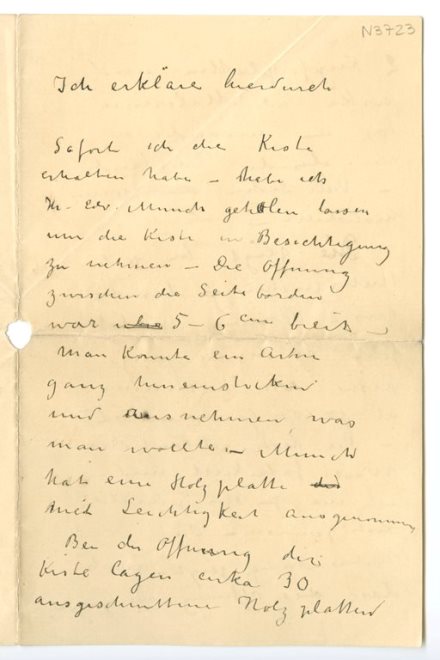 N3723
Ich erkläre hierdurch
Sofort ich die Kiste
erhalten habe – habe ich
Hr. Edv. Munch geholen lassen
um die Kiste in Besichtigung
zu nehmen – Die Öffnung
zwischen die Seitebordin
war 5–6 cm breit –
Man konnte ein Arm
ganz hineinstocken
und ausnehmen was
man wollte – Munch
hat eine Holzplatte
mit Leichtigkeit ausgenommen
Bei der Öffnung der
Kiste lagen cirka 30
ausgeschnittene Holzplatten